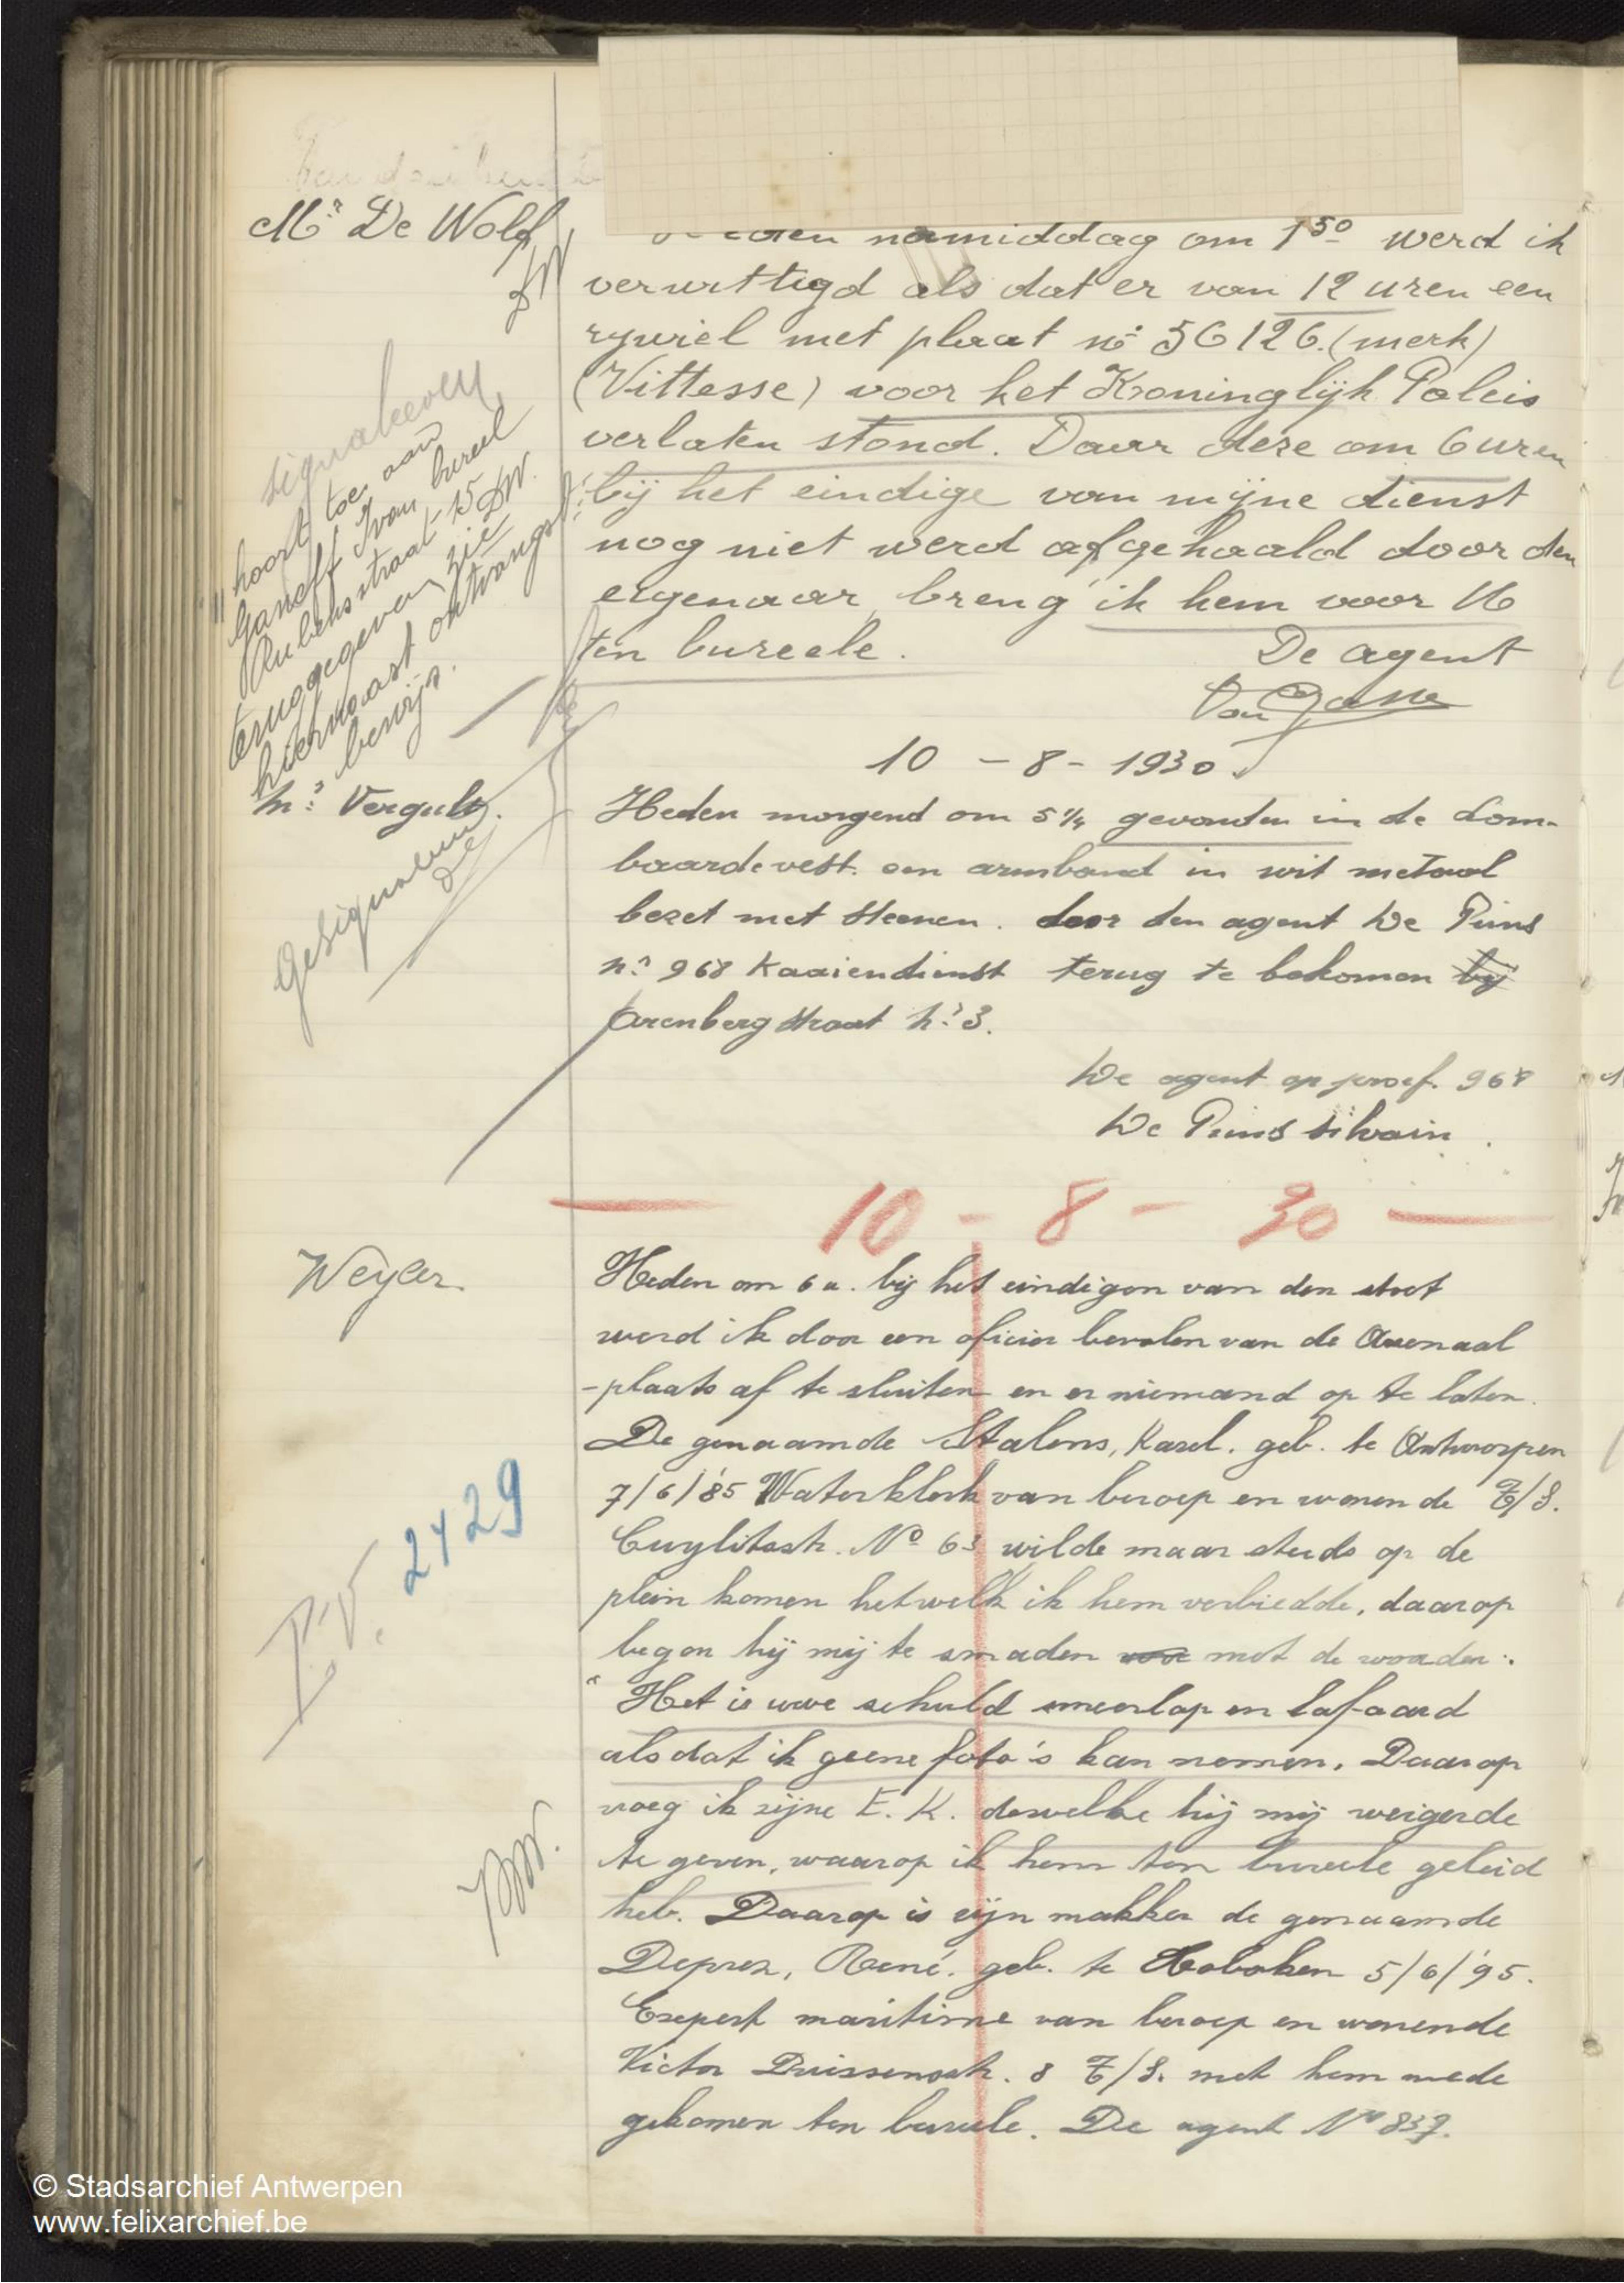 Mr De Wolf
DW
Heden namiddag om 1 50 werd ik
verwittigd als dat er van 12 uren een
rijwiel met plaat no 56126. (merk)
(Vittesse) voor het Kroninglijk Paleis
verlaten stond. Daar deze om 6 uren
bij het eindige van mijne dienst
nog niet werd afgehaald door den
eigenaar, breng ik hem voor
ten bureele.
De agent
Van
signaleeren
"hoort toe aan
Ivan bureel
Rubensstraat 15 DW.
teruggegeven zie
hiernaast ontvangst
bewijs.
10 - 8 - 1930
Mr Vergult.
Gesignaleerd
Heden morgend om 5 1/4 gevonden in de Lom-
baardevest. een armband in wit metaal
bezet met steenen. door den agent De Puns
nr 968 Kaaiendienst terug te bekomen bij
Arenbergstraat nr 3.
De agent op proef. 968
De Puns Silvain.
10 - 8 - 30
Weyler.
Heden om 6 u. bij het eindigen van den stoet
werd ik door een oficier bevolen van de Arsenaal
-plaats af te sluiten en er niemand op te laten.
De genaamde Stalens, Karel. geb. te Antwerpen
7/6/'85 Waterklerk van beroep en wonende T/S.
Cuylitsstr. No 63 wilde maar steeds op de
plein komen hetwelk ik hem verbiedde, daarop
begon hij mij te smaden voor met de woorden:
"Het is uwe schuld smeerlap en lafaard
als dat ik geene foto's kan nemen. Daarop
vroeg ik zijne E. K. dewelke hij mij weigerde
te geven, waarop ik hem ten bureele geleid
heb. Daarop is zijn makker de genaamde
Deprez, René. geb. te Hoboken 5/6/'95.
Exepert maritime van beroep en wonende
Victor Driessensstr. 8 T/S. met hem mede
gekomen ten bureele. De agent No 837.
P.V. 2429
DW.
© Stadsarchief Antwerpen
www.felixarchief.be